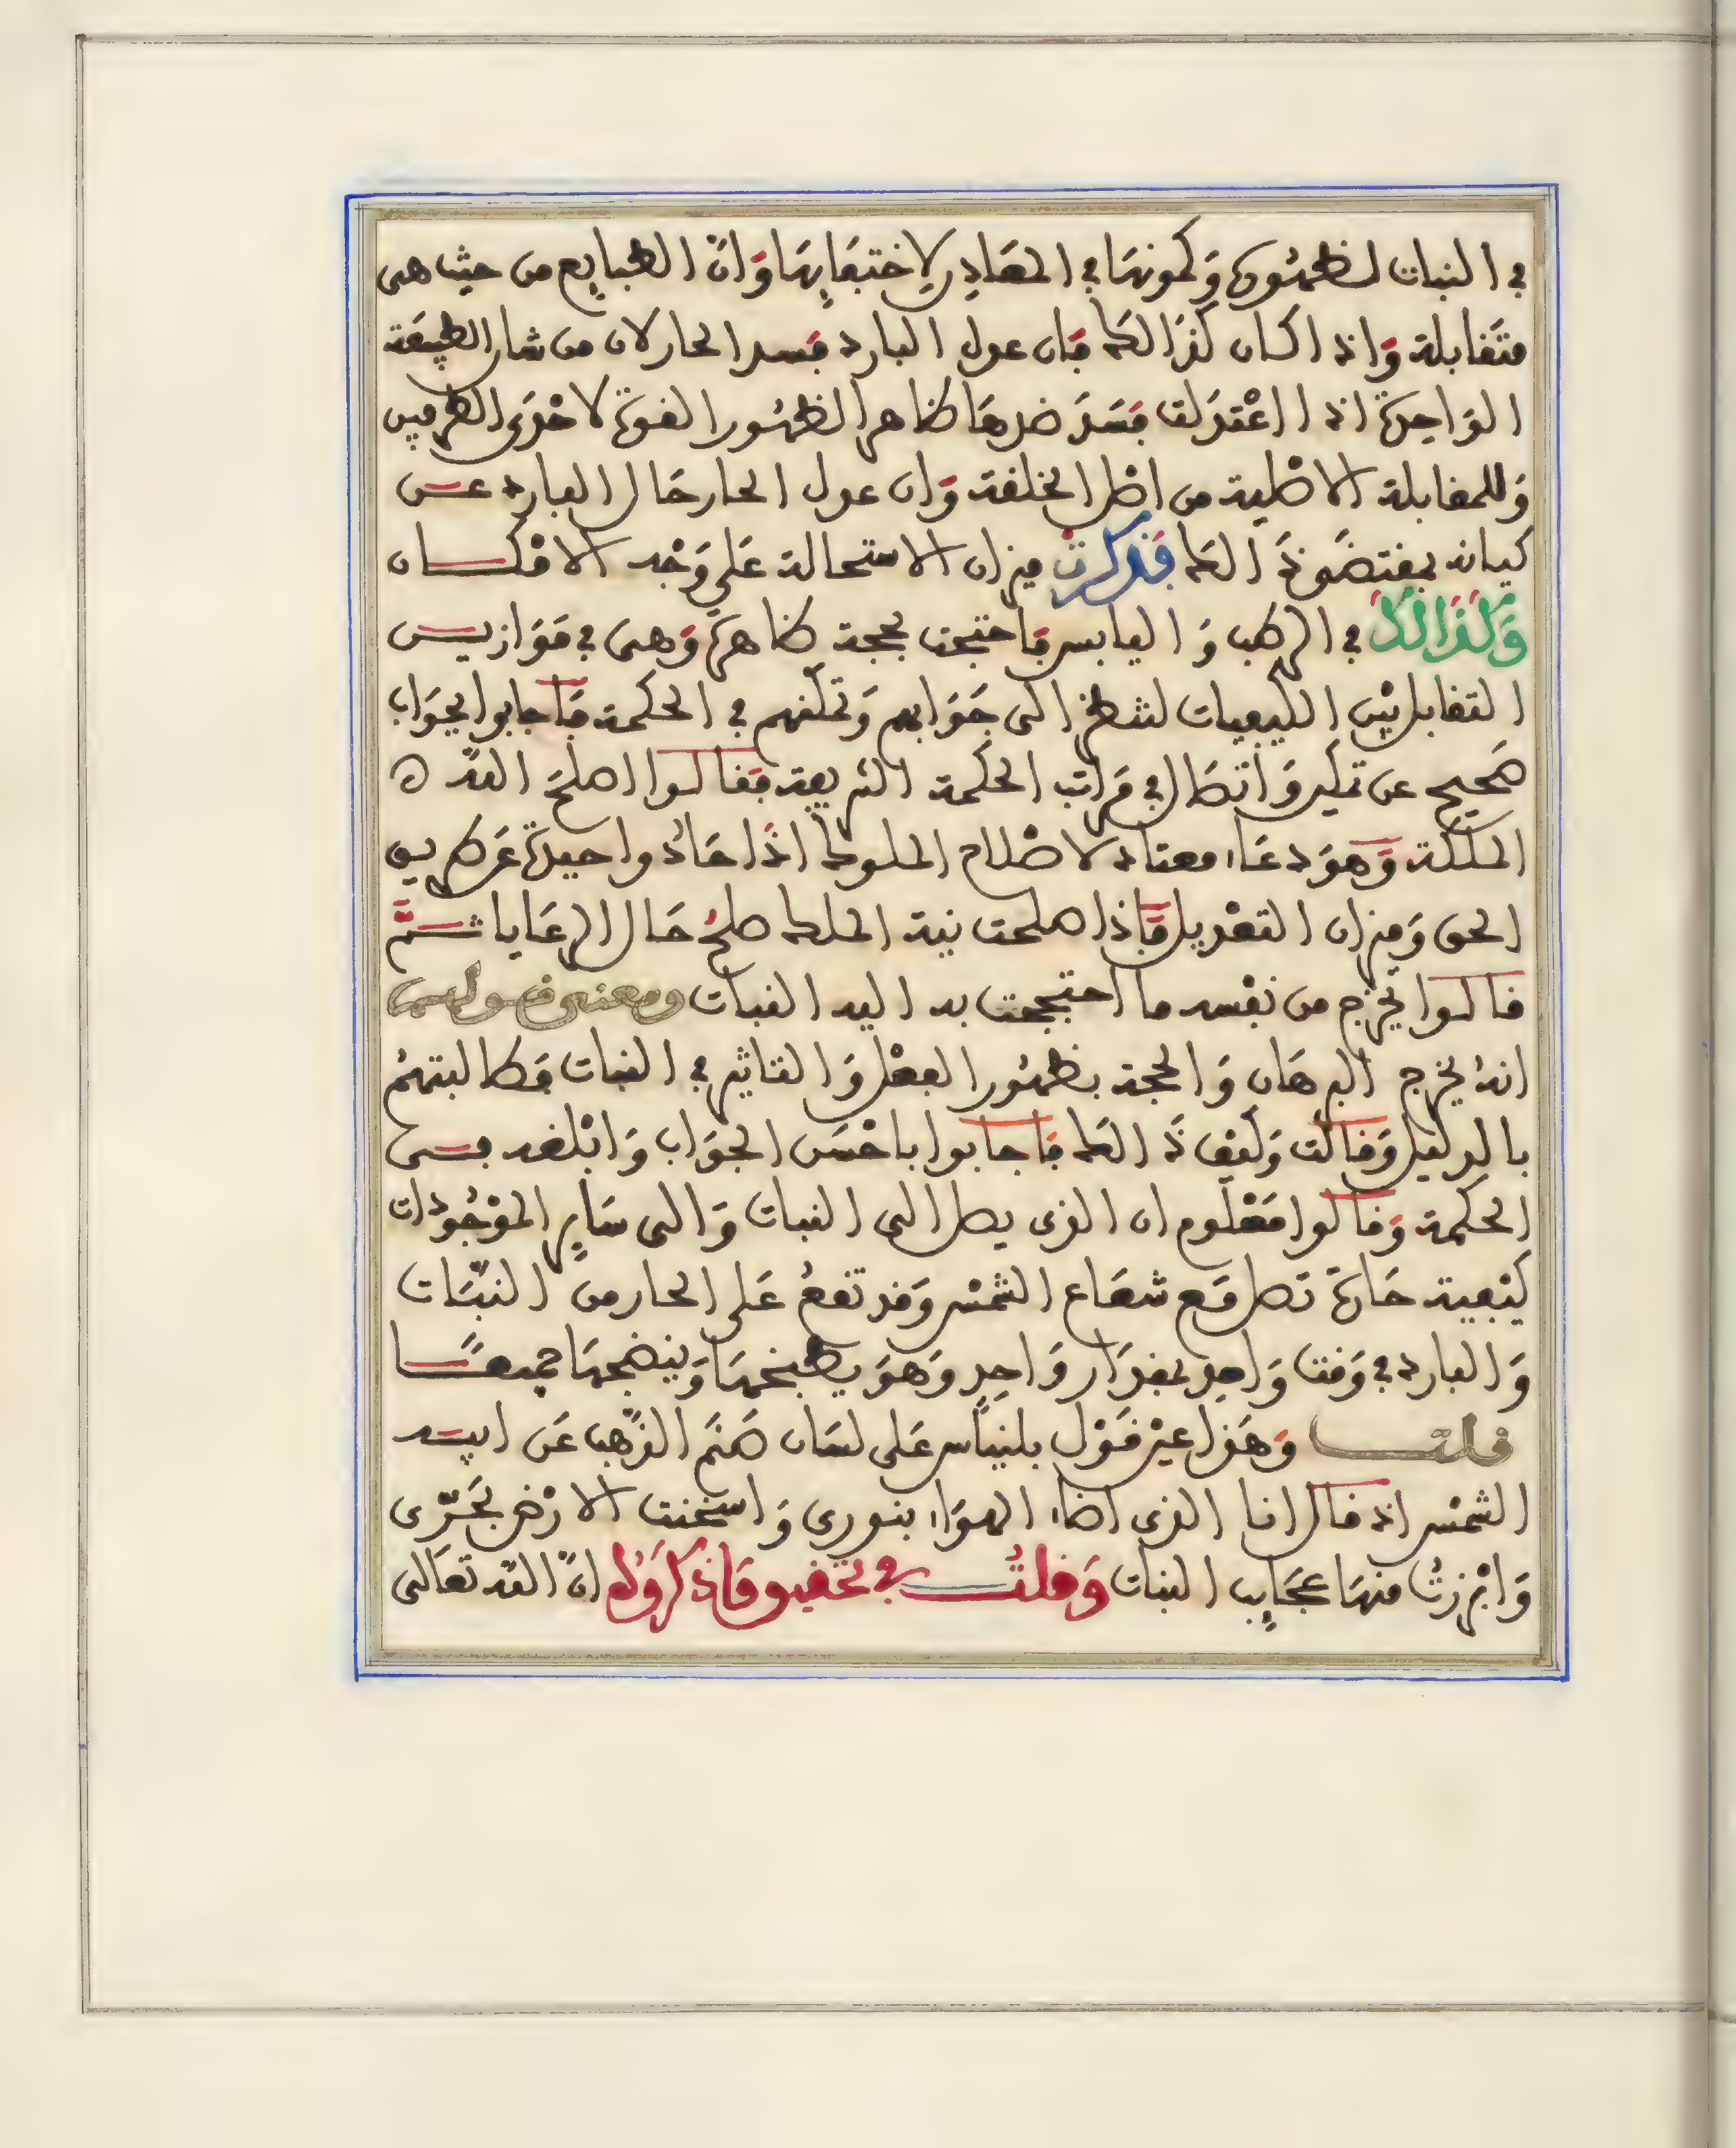 في النبات لظهورها وكمونها في المعادن لاختفايها وان الطبايع من حيث هي
متقابلة واذا كان كذالك فان عدل البارد فسد الحار لان من شان الطبيعة
الواحدة اذا اعتدلت فسد ضدها ظاهرا لظهور القوة لاحدى الطرفين
وللمقابلة الاصلية من اصل الخلقة وان عدل الحار حال البارد عن
كيانه بمقتضى ذالك فذكرت ميزان الاستحالة على وجه الامكان
وكذالك في الرطب واليابس فاحتجت بحجة ظاهرة وهي في موازين
التقابل بين الكيفيات لتنظر الى جوابهم وتمكنهم في الحكمة فاجابوا بجواب
صحيح عن تمكين واتصال في مراتب الحكمة الشريفة فقالوا اصلح الله
الملكة وهو دعاء معتاد لاصلاح الملوك اذا حادوا حيدة عن طريق
الحق وميزان التعديل فاذا صلحت نية الملك صلح حال الرعايا ثم
قالوا يخرج من نفسه ما احتججت به اليه النبات ومعنى قولهم
انه يخرج البرهان والحجة بظهور الفعل والتاثير في النبات فطالبتهم
بالدليل وقالت وكيف ذالك فاجابوا باحسن الجواب وابلغه في
الحكمة وقالوا معلوم ان الذي يصل الى النبات والى ساير الموجودات
كيفية حارة تصل مع شعاع الشمس وقد تقع على الحار من النبات
والبارد في وقت واحد بمقدار واحد وهو يطبخها وينضجها جميعا
قلت وهذا عين قول بلنياس على لسان صنم الذهب عن ابيه
الشمس اذ قال انا الذي اضاء الهواء بنوري واسخنت الارض بحري
وابرزت منها عجايب النبات وقلت في تحقيق ماذكروه ان الله تعالى